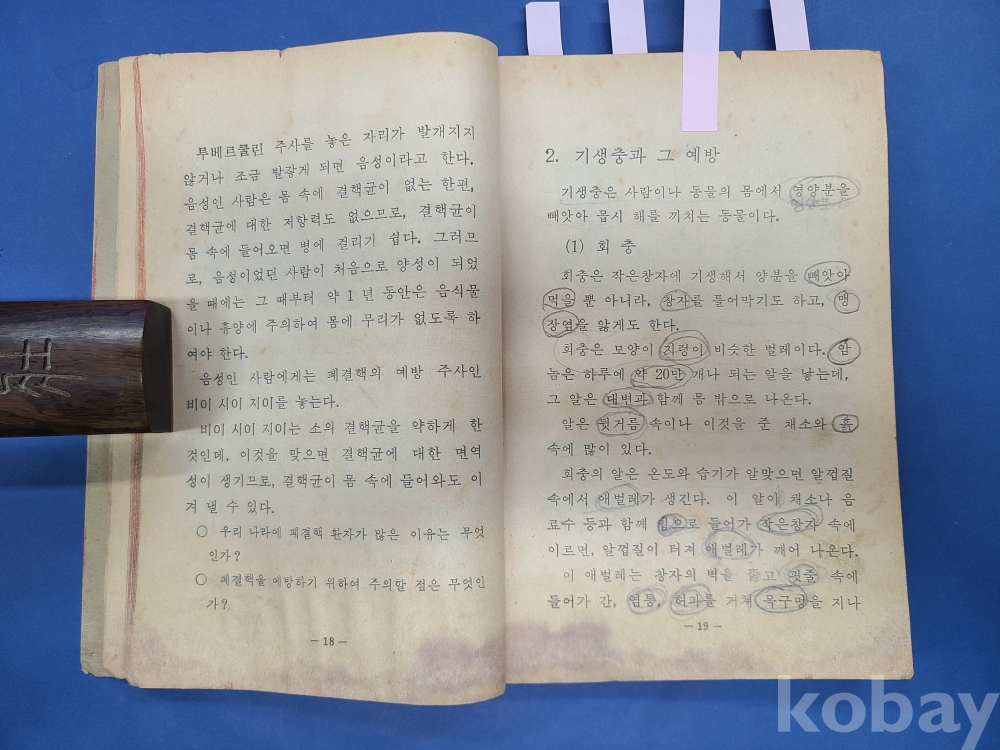 투베르쿨린 주사를 놓은 자리가 발개지지
않거나 조금 발갛게 되면 음성이라고 한다.
음성인 사람은 몸 속에 결핵균이 없는 한편,
결핵균에 대한 저항력도 없으므로, 결핵균이
몸 속에 들어오면 병에 걸리기 쉽다. 그러므
로, 음성이었던 사람이 처음으로 양성이 되었
을 때에는 그 때부터 약 1 년 동안은 음식물
이나 휴양에 주의하여 몸에 무리가 없도록 하
여야 한다.
음성인 사람에게는 폐결핵의 예방 주사인
비이 시이 지이를 놓는다.
비이 시이 지이는 소의 결핵균을 약하게 한
것인데, 이것을 맞으면 결핵균에 대한 면역
성이 생기므로, 결핵균이 몸 속에 들어와도 이
겨 낼 수 있다.
○ 우리 나라에 폐결핵 환자가 많은 이유는 무엇
인가?
○ 폐결핵을 예방하기 위하여 주의할 점은 무엇인
가?
— 18 —
2. 기생충과 그 예방
기생충은 사람이나 동물의 몸에서 영양분을
빼앗아 몹시 해를 끼치는 동물이다.
(1) 회 충
회충은 작은창자에 기생해서 양분을 빼앗아
먹을 뿐 아니라, 창자를 틀어막기도 하고, 맹
장염을 앓게도 한다.
회충은 모양이 지렁이 비슷한 벌레이다. 암
놈은 하루에 약 20만 개나 되는 알을 낳는데,
그 알은 대변과 함께 몸 밖으로 나온다.
알은 뒷거름 속이나 이것을 준 채소와 흙
속에 많이 있다.
회충의 알은 온도와 습기가 알맞으면 알껍질
속에서 애벌레가 생긴다. 이 알이 채소나 음
료수 등과 함께 입으로 들어가 작은창자 속에
이르면, 알껍질이 터져 애벌레가 깨어 나온다.
이 애벌레는 창자의 벽을 뚫고 핏줄 속에
들어가 간, 염통, 허파를 거쳐 목구멍을 지나
— 19 —
kobay